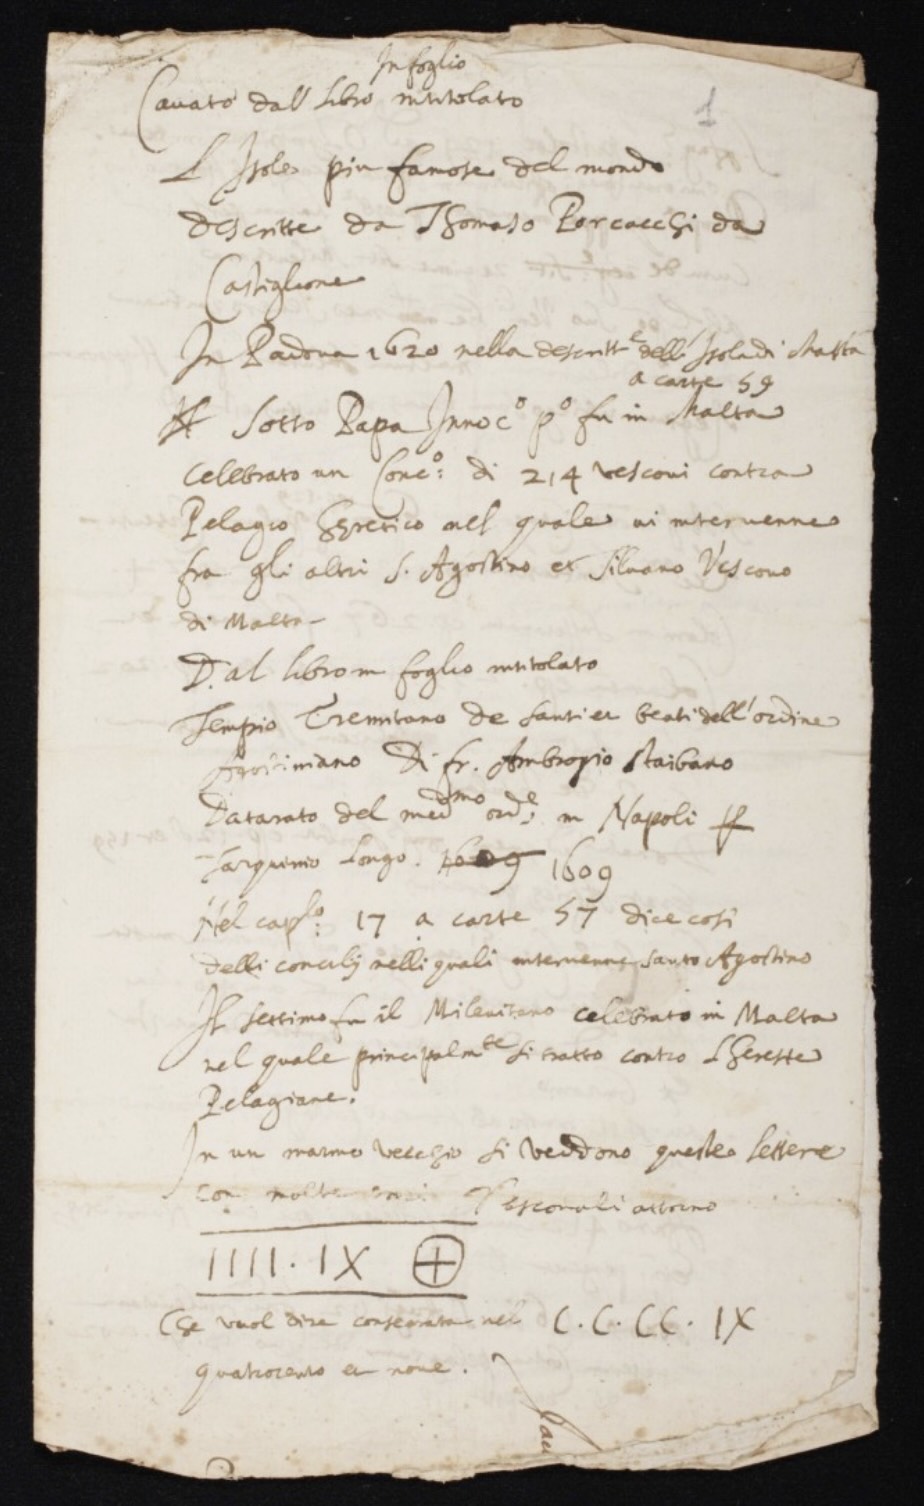 In foglio
1
Cavato dall libro intitolato
L Isole piu famose del mondo
descritte da Thomaso Porcacchi da
Castiglione
In Padova 1620 nella descritt.e dell' Isola di Malta
a carte 59
Sotto Papa Innoc.o p.o fu in Malta
celebrato un Conc.o: di 214 vescovi contra
Pelagio Heretico nel quale vi intervenne
fra gli altri S. Agostino et Silvano Vescovo
di Malta -
D.al libro in foglio intitolato
Tempio Eremitano de santi et beati dell'ordine
Agostiniano Di fr. Ambrogio Staibano
Da Tarato del med.mo ord.e: in Napoli p
Tarquinio Longo. 1609 1609
Nel cap.lo: 17 a carte 57 dice cosi
delli concilij nelli quali intervenne santo Agostino
Il settimo fu il Milevitano celebrato in Malta
nel quale principalm.te si tratto contro l'Herette
Pelagiane.
In un marmo vecchio si veddono queste lettere
con molte croci Vescovali attorno
IIII. IX ⊕
Che vuol dire consecrata nel C.C.CC. IX
quatrocento et nove.